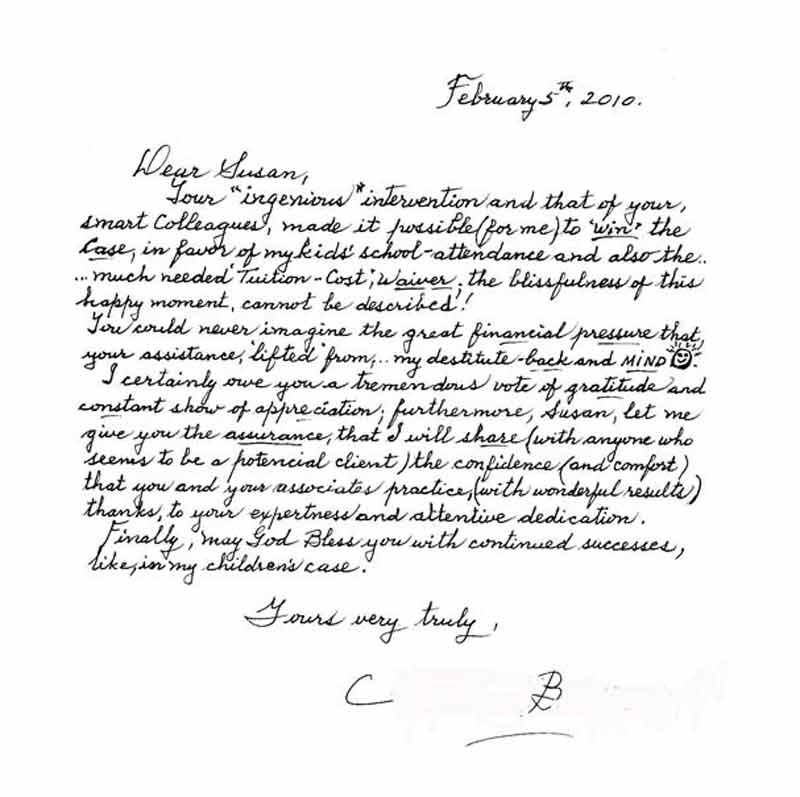 February 5th, 2010.
Dear Susan,
Your "ingenious" intervention and that of your,
smart Colleagues, made it possible (for me) to "win" the
Case, in favor of my kids' school-attendance and also the..
...much needed 'Tuition-Cost', Waiver; the blissfulness of this
happy moment, cannot be described!
You could never imagine the great financial pressure that,
your assistance, 'lifted' from,.. my destitute-back and MIND.
I certainly owe you a tremendous vote of gratitude and
constant show of appreciation; furthermore, Susan, let me
give you the assurance, that I will share (with anyone who
seems to be a potencial client) the confidence (and comfort)
that you and your associates practice, (with wonderful results)
thanks, to your expertness and attentive dedication.
Finally, may God Bless you with continued successes,
like, in my children's case.
Yours very truly,
C B